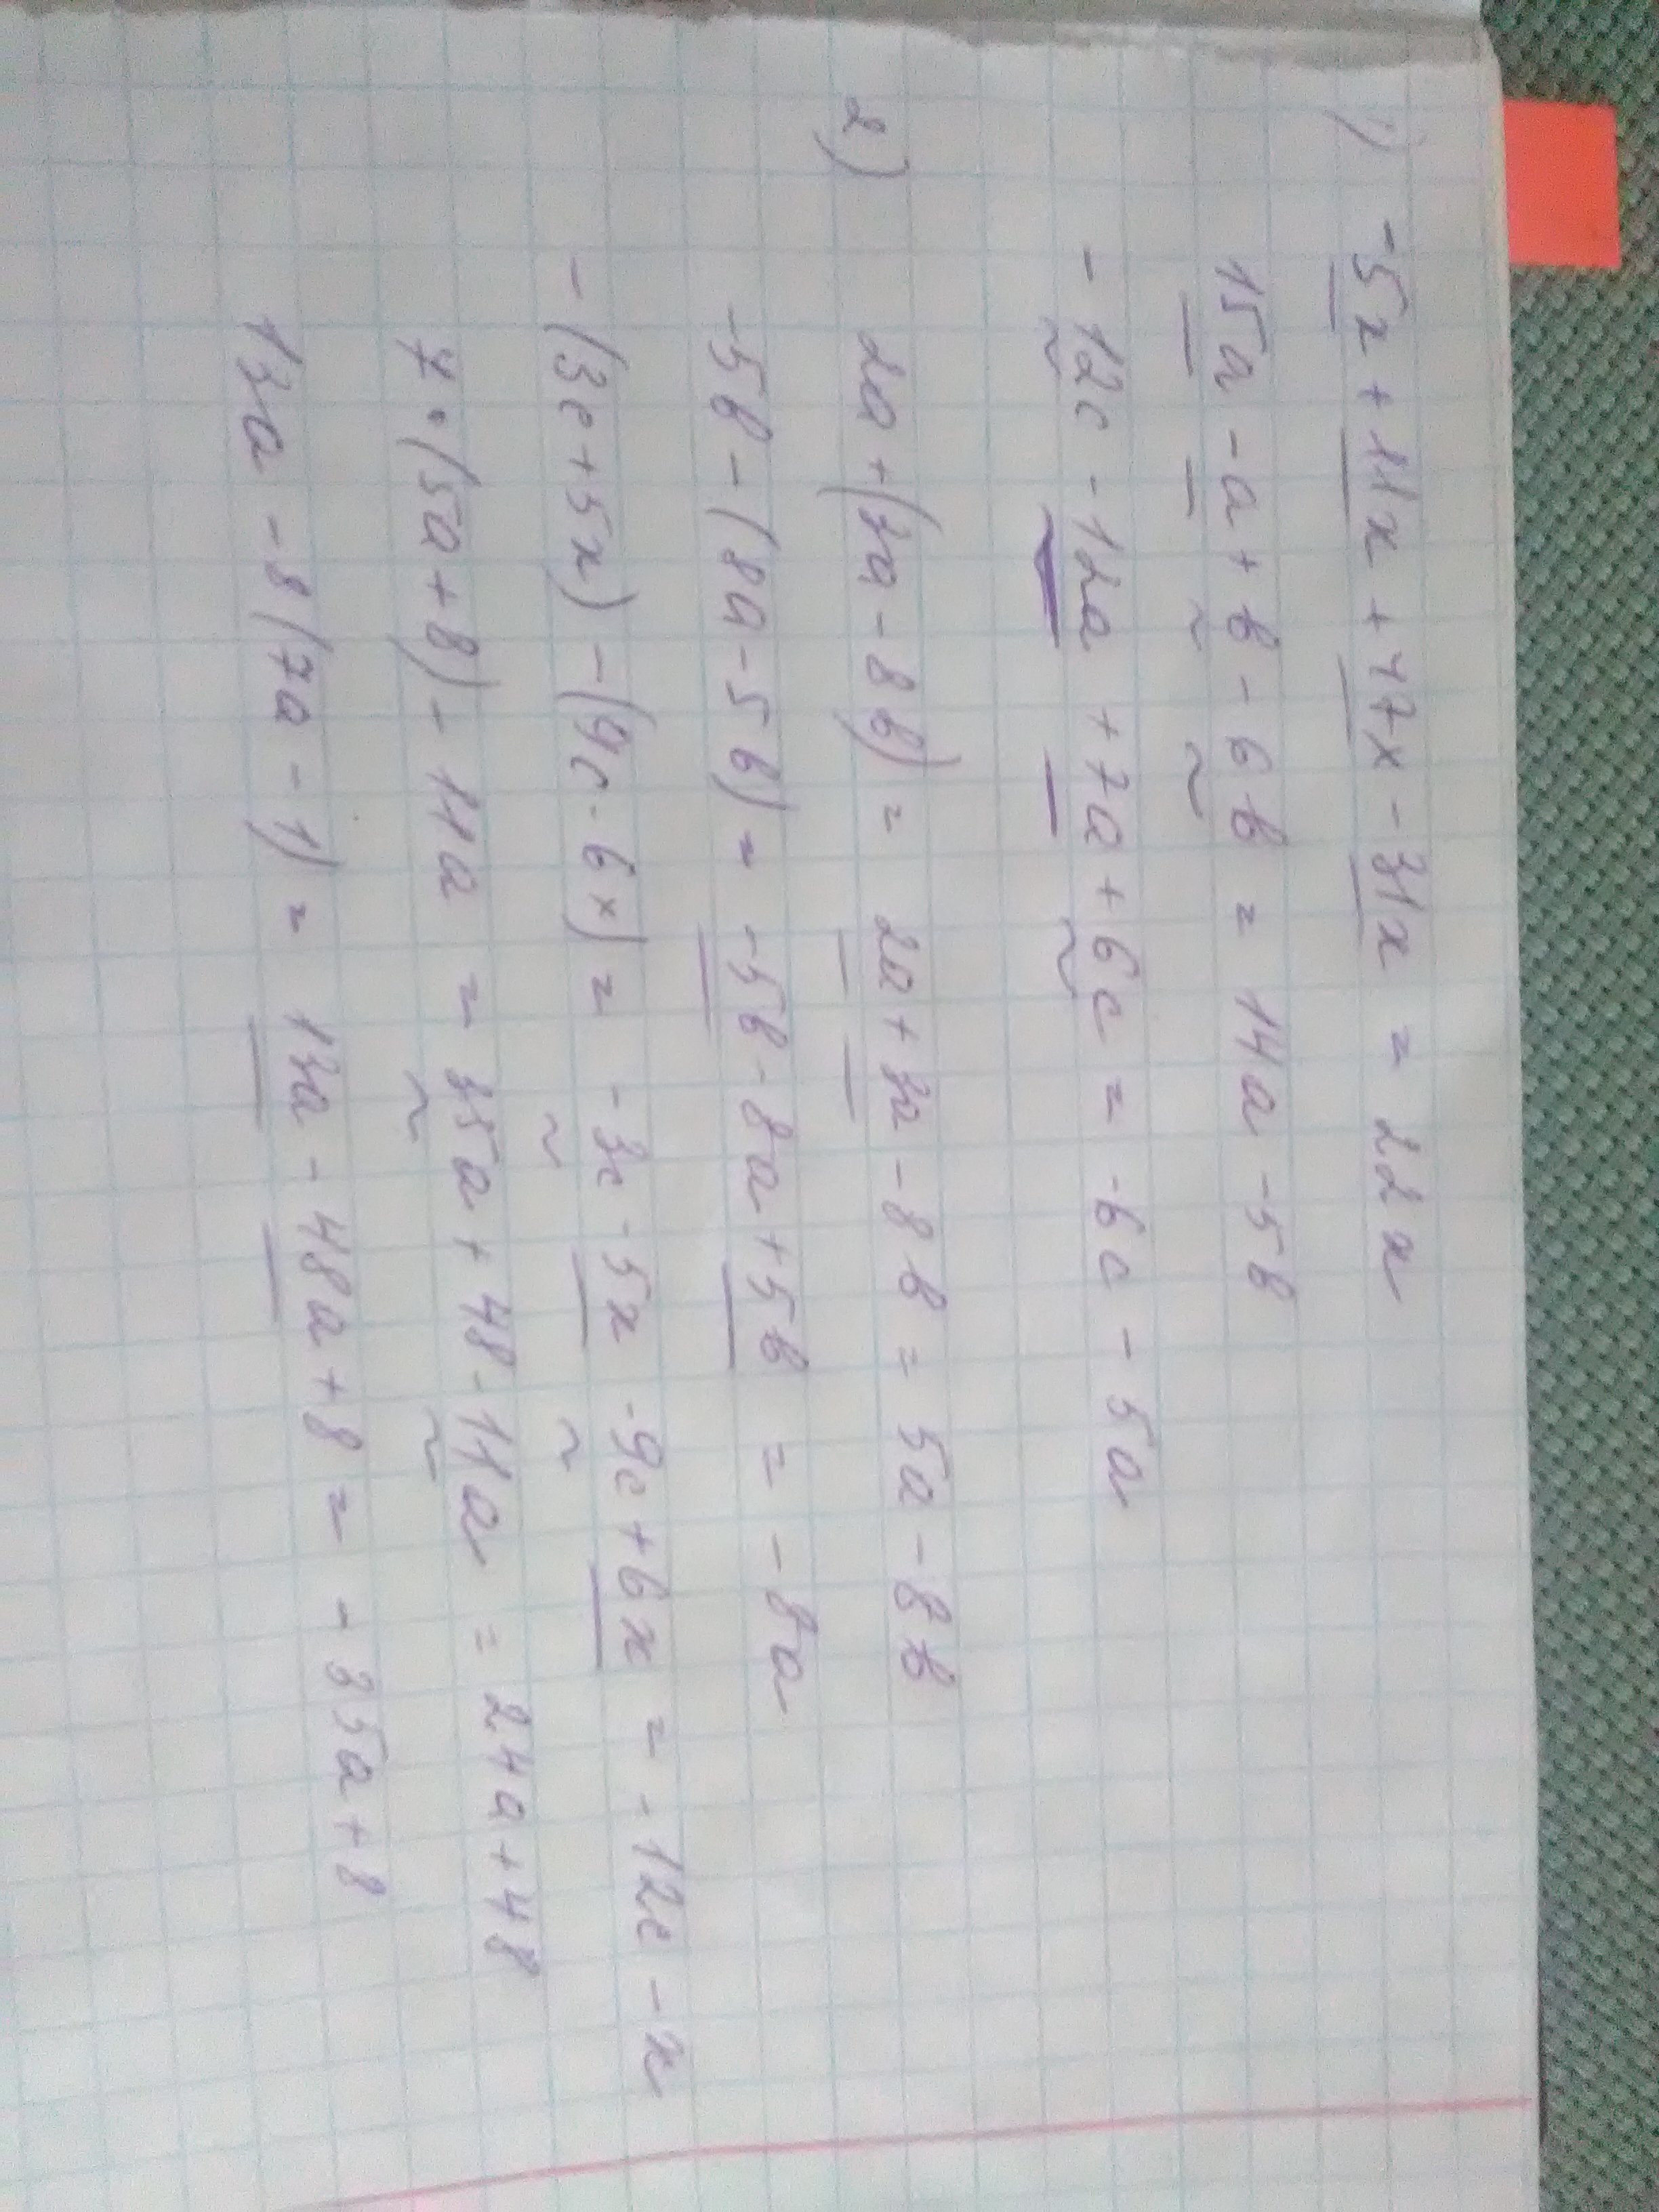 1) -5x + 11x + 47x - 31x = 22x
15a - a + b - 6b = 14a - 5b
- 12c - 12a + 7a + 6c = -6c - 5a
2) 2a + (3a - 8b) = 2a + 3a - 8b = 5a - 8b
-5b - (8a - 5b) = -5b - 8a + 5b = -8a
- (3c + 5x) - (9c - 6x) = -3c - 5x - 9c + 6x = -12c - x
7 · (5a + 8) - 11a = 35a + 48 - 11a = 24a + 48
13a - 8(7a - 1) = 13a - 48a + 8 = - 35a + 8